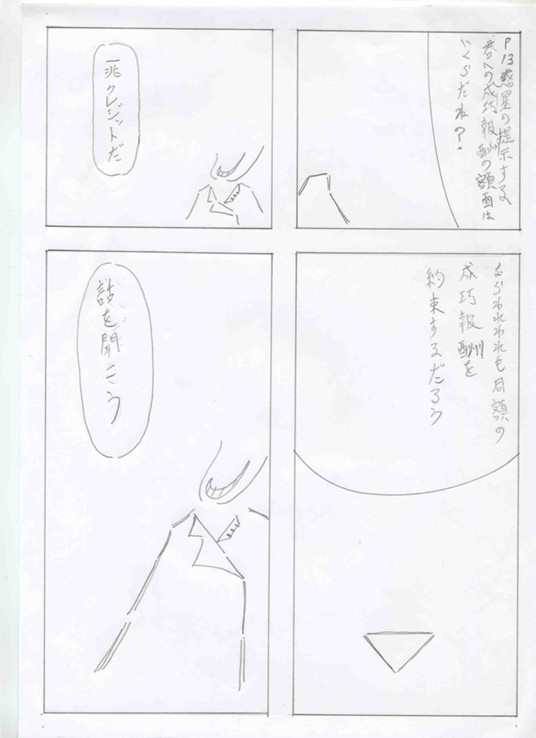 P13惑星の提示する
君への成巧報酬の額面は
いくらだね?
一兆クレジットだ
ならわれわれも同額の
成巧報酬を
約束するだろう
話を聞こう